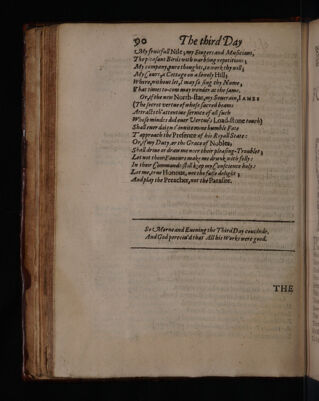 90 The third Day
My fruitfull Nile; my Singers and Musicians,
The pleasant Birds with warbling repetitions;
My company, pure thoughts, to work thy will;
My Court, a Cottage on a lowely Hill;
Where, without let, I may so sing thy Name,
That times to-come may wonder at the same.
Or, if the new North-star, my Soueraign, IAMES
(The secret vertue of whose sacred beams
Attracteth th'attentiue seruice of all such
Whose mindes did euer Vertue's Load-stone touch)
Shall euer daign t'inuite mine humble Fate
T'approach the Presence of his Royall State:
Or, if my Duty, or the Grace of Nobles,
Shall driue or draw me neer their pleasing-Troubles;
Let not their Fauours make me drunk with folly:
In their Commands, still keep my Conscience holy:
Let me, true Honour, not the false delight;
And play the Preacher, not the Parasite.
So Morne and Euening the Third Day conclude,
And God perceiv'd that All his Works were good.
THE